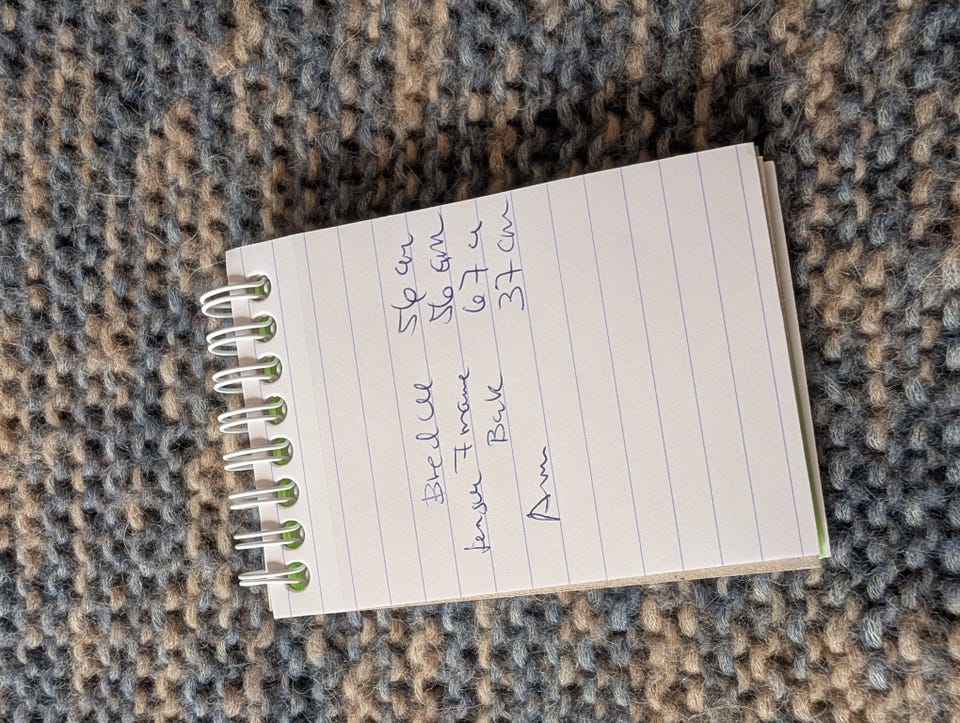 Bredde 56 cm
lengde 56 cm
Bak 67 cm
Arm 37 cm